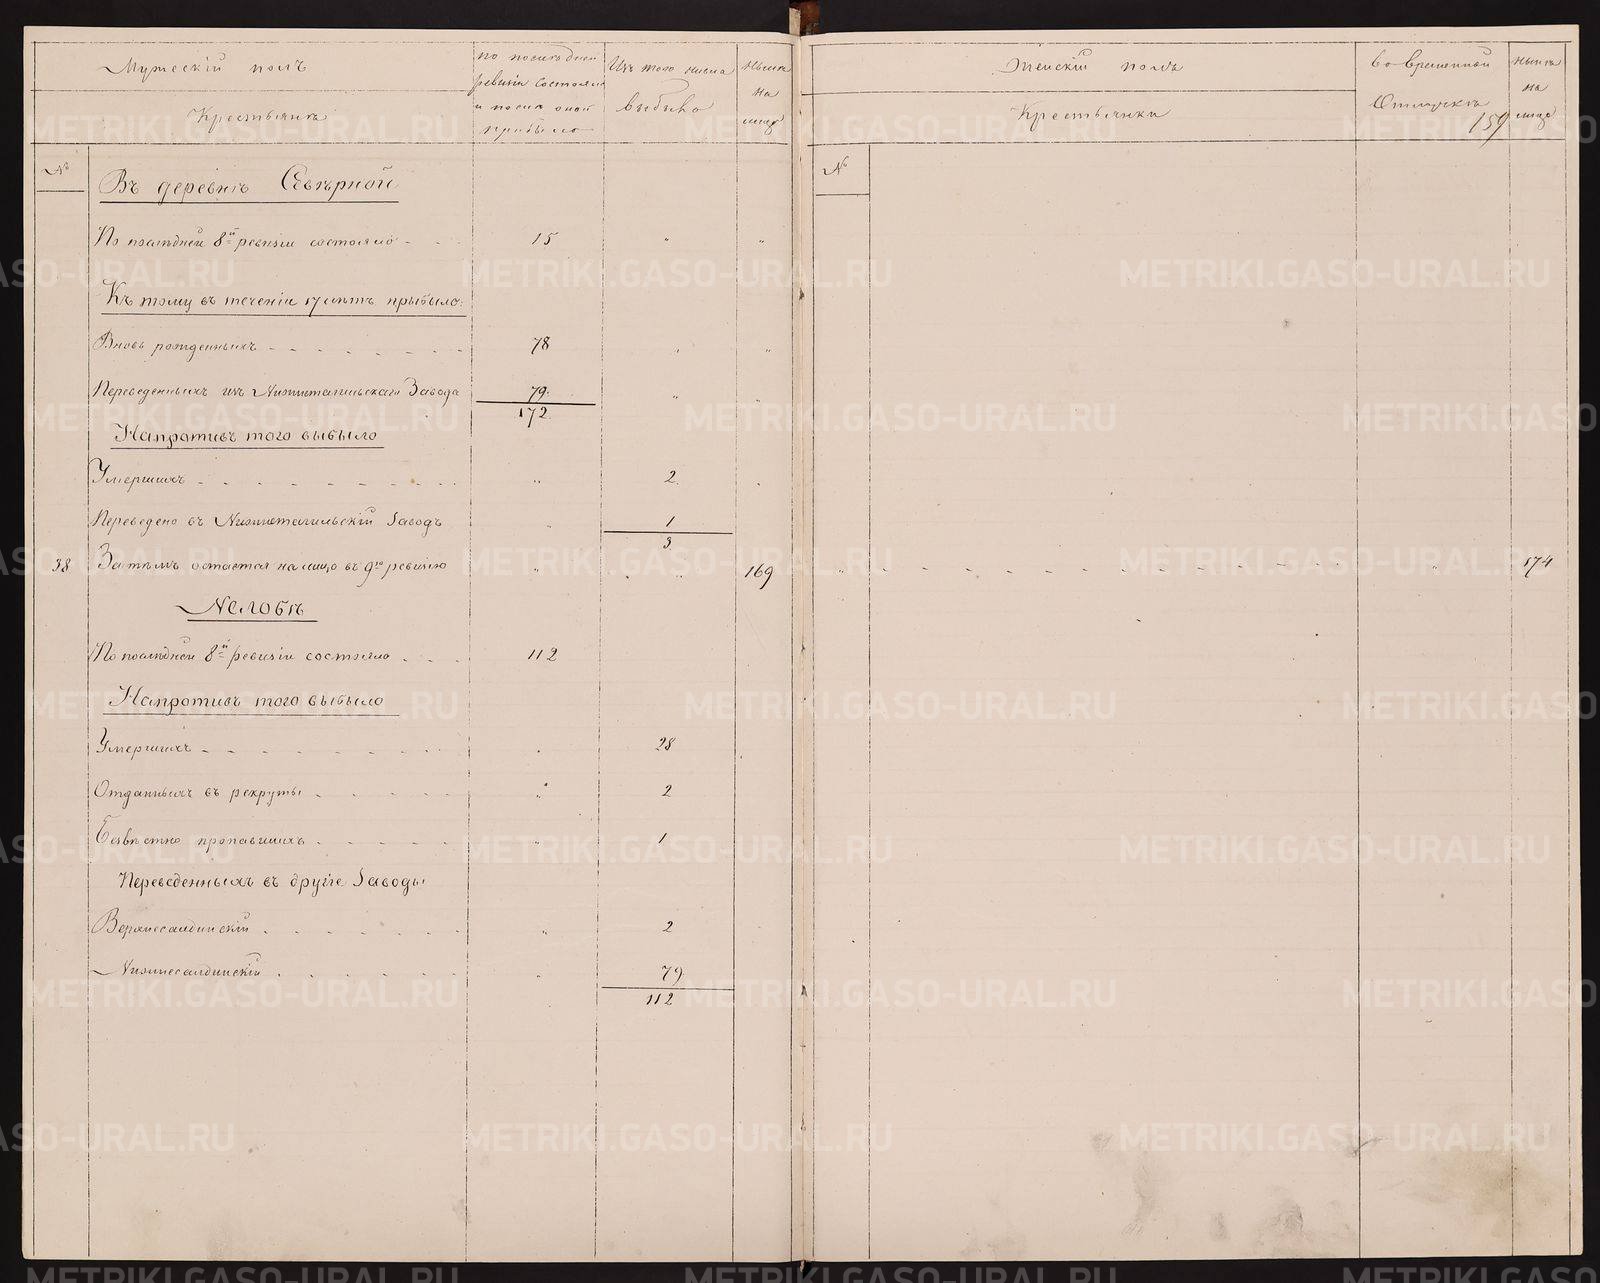 Мужескій полъ
Крестьянъ
по последней
ревизіи состояло
и после оной
прибыло
Изъ того числа
выбыло
Ныне
на
лицо
№
Въ деревнѣ Сѣверной
По последней 8й ревизіи состояло - - 15 " "
Къ тому въ теченіи 17 летъ прибыло:
Вновь рожденныхъ - - - - - - - 78 " "
Переведенныхъ изъ Нижнетагильскаго Завода 79. " "
172
Напротивъ того выбыло
Умершихъ - - - - - - - - " 2. "
Переведено въ Нижнетагильскій Заводъ " 1
3
38 Затѣмъ остается на лицо въ 9ю ревизію " " 169
Нелобѣ
По последней 8й ревизіи состояло - - - 112
Напротивъ того выбыло
Умершихъ - - - - - - - - " 28
Отданныхъ въ рекруты - - - - - " 2
Безвѣстно пропавшихъ - - - - - " 1
Переведенныхъ въ другіе Заводы
Верхнесалдинскій - - - - - - - " 2
Нижнесалдинскій - - - - - - " 79.
112
Женскій полъ
Крестьянки
во временной
Отлучкѣ
159
ныне
на
лицо
№
" - - - - - - - - - - - - - - " 174
METRIKI.GASO-URAL.RU